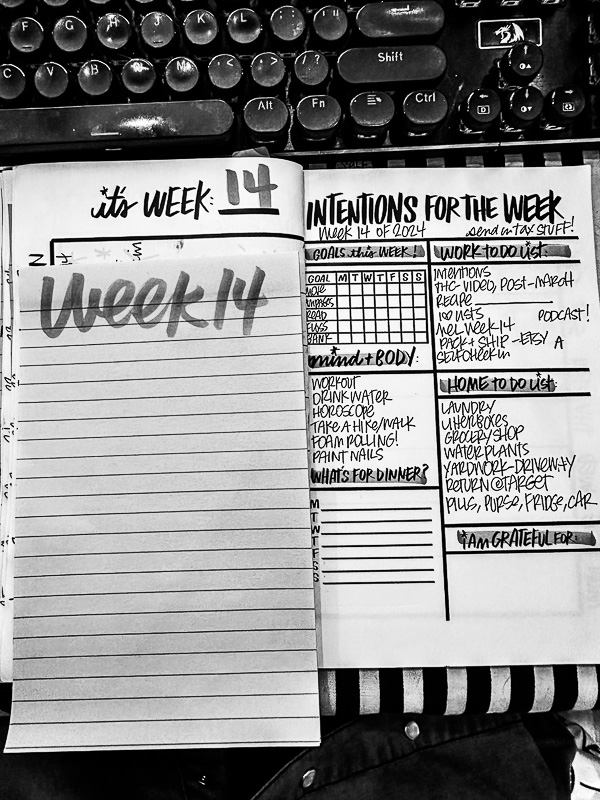 F G H J K L : ; " '
C V B N M < , > . ? /
Shift
Alt Fn Ctrl
it's WEEK: 14
Week 14
INTENTIONS FOR THE WEEK
Week 14 OF 2024
send in tax STUFF!
GOALS this WEEK!
GOAL M T W T F S S
READ
FLOSS
BANK
mind + BODY:
WORKOUT
DRINK WATER
HOROSCOPE
TAKE A HIKE/WALK
FOAM ROLLING!
PAINT NAILS
WHAT'S FOR DINNER?
M
T
W
T
F
S
S
WORK TO DO list:
INTENTIONS
THC-VIDEO, POST-MARCH
RECIPE
100 LISTS PODCAST!
WEEK 14
PACK + SHIP - ETSY A
SELFCHECKIN
HOME TO DO list:
LAUNDRY
LITTERBOXES
GROCERY SHOP
WATER PLANTS
YARDWORK-DRIVEWAY
RETURN @ TARGET
PILLS, PURSE, FRIDGE, CAR
i AM GRATEFUL FOR: